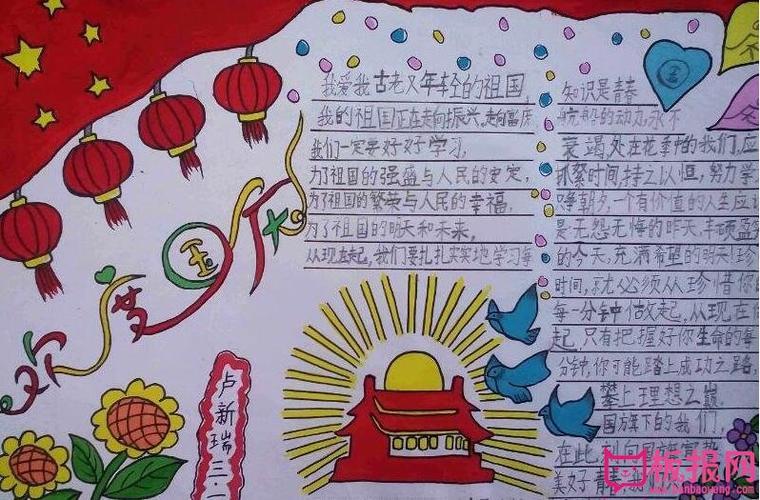 欢度国庆
我爱我古老又年轻的祖国,
我的祖国正在走向振兴,走向富庶
我们一定要好好学习,
为了祖国的强盛与人民的安定,
为了祖国的繁荣与人民的幸福,
为了祖国的明天和未来,
从现在起,我们要扎扎实实地学习每
知识是青春
的动力,永不
衰竭,处在花季中的我们,应
抓紧时间,持之以恒,努力学
一个有价值的人生应
是无怨无悔的昨天,丰硕盈
的今天,充满希望的明天!珍
时间,就必须从珍惜你
每一分钟做起,从现在
起,只有把握好你生命的每
分钟,你可能踏上成功之路,
攀上理想之巅
国旗下的我们,
在此,
美好青春
国
卢新瑞
三.一
板报网
www.banbaowang.com